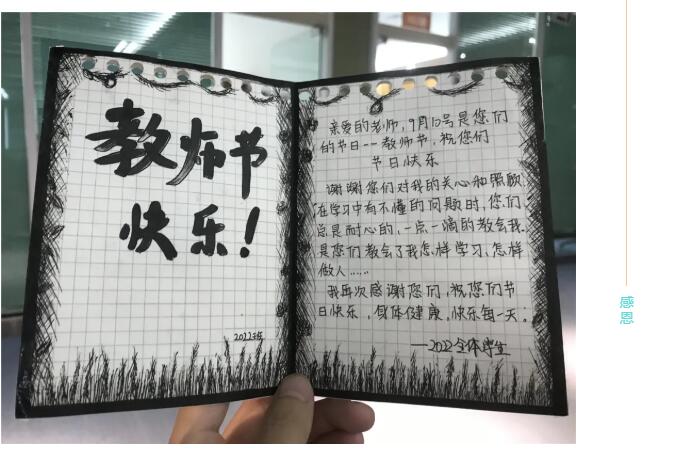 教师节
快乐！
2022班
亲爱的老师，9月10号是您们
的节日--教师节，祝您们
节日快乐
谢谢您们对我的关心和照顾
在学习中有不懂的问题时，您们
总是耐心的，一点一滴的教会我.
是您们教会了我怎样学习，怎样
做人……
我再次感谢您们，祝您们节
日快乐，身体健康，快乐每一天。
—2022全体学生
感恩